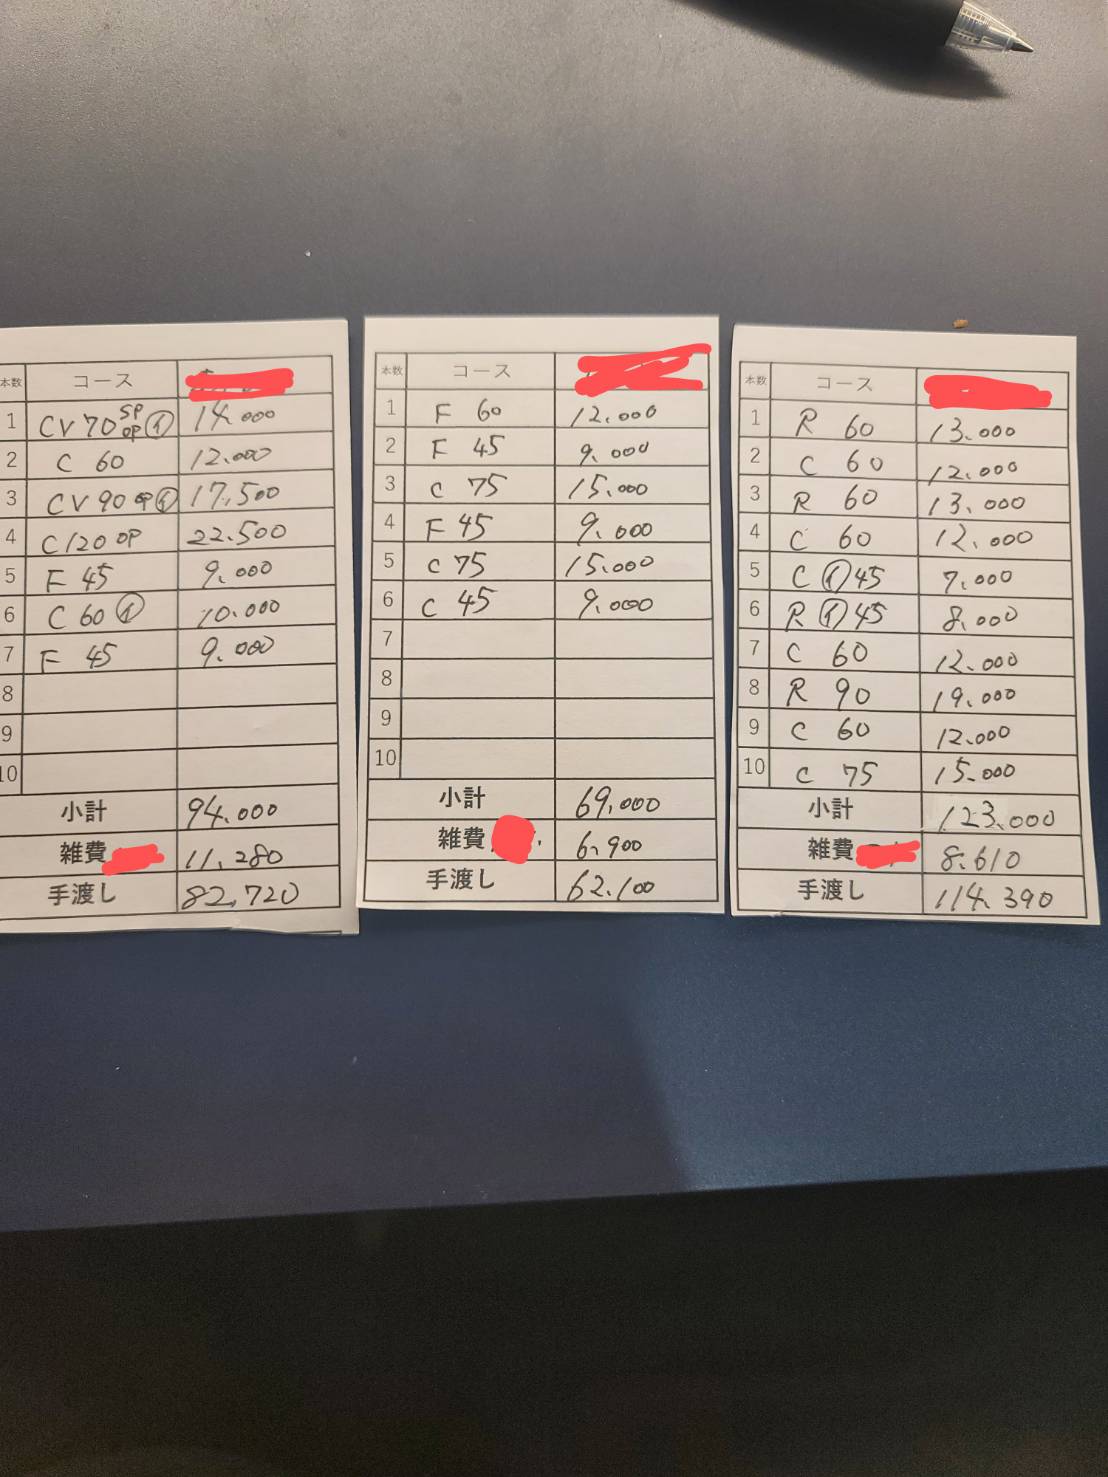 本数 コース
1 CV70 SP OP イ 14.000
2 C 60 12.000
3 CV90 OP イ 17,500
4 C120 OP 22.500
5 F 45 9.000
6 C 60 イ 10.000
7 F 45 9.000
8
9
10
小計 94.000
雑費 11,280
手渡し 82,720
本数 コース
1 F 60 12.000
2 F 45 9.000
3 C 75 15.000
4 F 45 9.000
5 C 75 15.000
6 C 45 9.000
7
8
9
10
小計 69,000
雑費 6,900
手渡し 62,100
本数 コース
1 R 60 13.000
2 C 60 12.000
3 R 60 13.000
4 C 60 12.000
5 C イ 45 7.000
6 R イ 45 8.000
7 C 60 12.000
8 R 90 19.000
9 C 60 12.000
10 C 75 15.000
小計 123.000
雑費 8.610
手渡し 114.390